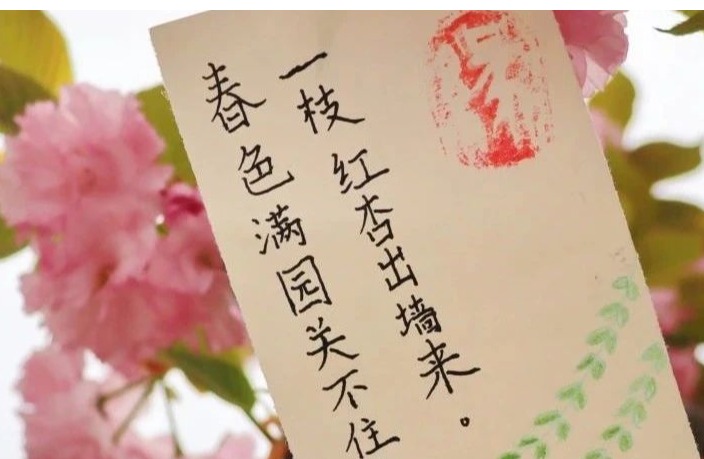 春色满园关不住
一枝红杏出墙来。